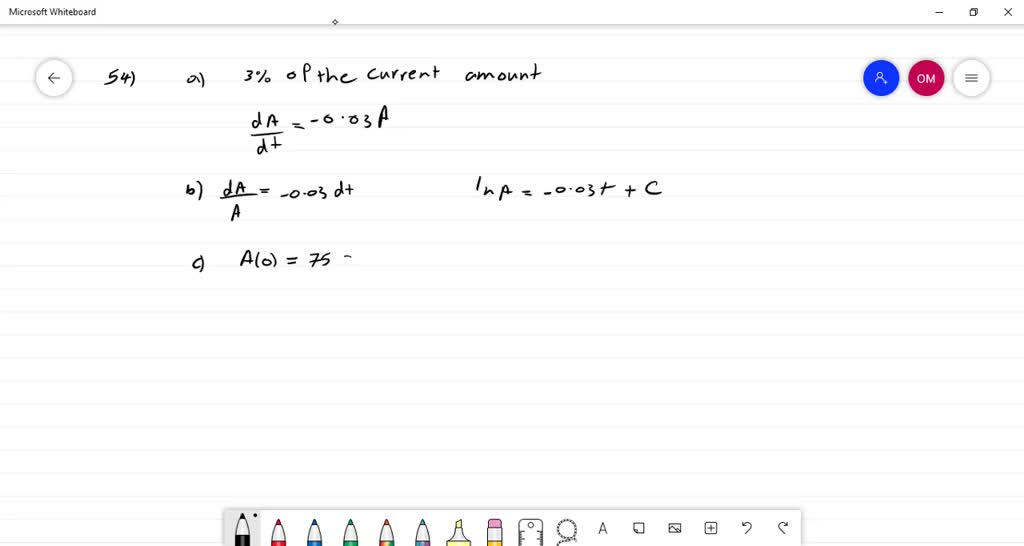 Microsoft Whiteboard
54) a) 3% of the current amount
OM
dA/dt = -0.03A
b) dA/A = -0.03 dt ln A = -0.03t + C
c) A(0) = 75 -
A